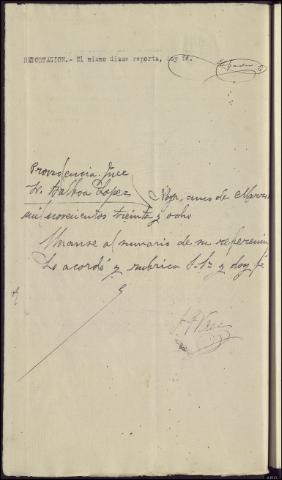 REPORTACION.- El mismo diase reporta, doy fé.
Providencia Juez
Sr. Balboa Lopez
Noya, cinco de Marzo
mil novecientos treinta y ocho
Unanse al sumario de su referencia
Lo acordó y rubrica S.Sª y doy fé